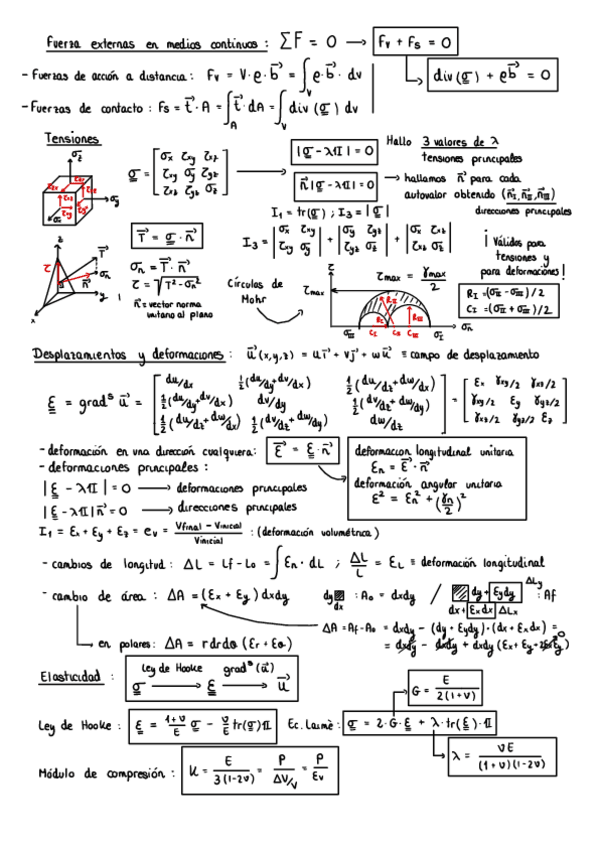 Fuerza externas en medios continuos: ΣF = 0 → Fv + Fs = 0
- Fuerzas de acción a distancia: Fv = V·ρ·b⃗ = ∫_V ρ·b⃗·dv
div(σ) + ρb⃗ = 0
- Fuerzas de contacto: Fs = t⃗·A = ∫_A t⃗·dA = ∫_V div(σ) dv
Tensiones
σ = [σx τxy τxz; τxy σy τyz; τxz τyz σz]
|σ - λ𝟙| = 0
n⃗|σ - λ𝟙| = 0
Hallo 3 valores de λ
tensiones principales
→ hallamos n⃗ para cada
autovalor obtenido (n⃗I, n⃗II, n⃗III)
direcciones principales
I₁ = tr(σ) ; I₃ = |σ|
T⃗ = σ·n⃗
I₃ = |σx τxy; τxy σy| + |σy τyz; τyz σz| + |σx τxz; τxz σz|
¡Válidos para
tensiones y
para deformaciones!
σn = T⃗·n⃗
τ = √(T² - σn²)
n⃗ = vector norma
unitario al plano
Círculos de
Mohr
τmax = γmax/2
RI = (σII - σIII)/2
CI = (σII + σIII)/2
Desplazamientos y deformaciones: u⃗(x,y,z) = uı⃗ + vȷ⃗ + wk⃗ ≡ campo de desplazamento
ε = gradˢ u⃗ = [du/dx ½(du/dy+dv/dx) ½(du/dz+dw/dx); ½(du/dy+dv/dx) dv/dy ½(dv/dz+dw/dy); ½(du/dz+dw/dx) ½(dv/dz+dw/dy) dw/dz] = [εx γxy/2 γxz/2; γxy/2 εy γyz/2; γxz/2 γyz/2 εz]
- deformación en una dirección cualquiera: ε⃗ = ε·n⃗
deformacion longitudinal unitaria
εn = ε⃗·n⃗
deformación angular unitaria
ε² = εn² + (γn/2)²
- deformaciones principales:
|ε - λ𝟙| = 0 → deformaciones principales
|ε - λ𝟙|n⃗ = 0 → direcciones principales
I₁ = εx + εy + εz = ev = (Vfinal - Vinicial)/Vinicial : (deformación volumétrica)
- cambios de longitud: ΔL = Lf - Lo = ∫εn·dL ; ΔL/L = εL ≡ deformación longitudinal
- cambio de área: ΔA = (εx + εy) dxdy
dy dx : Ao = dxdy / dy + εydy ΔLy dx + εxdx ΔLx : Af
ΔA = Af - Ao = dxdy - (dy + εydy)·(dx + εxdx) =
= dxdy - dxdy + dxdy (εx + εy + εxεy) 0
→ en polares: ΔA = rdrdθ (εr + εθ)
Elasticidad: ley de Hooke gradˢ(u⃗)
σ → ε → u⃗
G = E/2(1+ν)
Ley de Hooke: ε = (1+ν)/E σ - ν/E tr(σ)𝟙 Ec. Laimè: σ = 2·G·ε + λ·tr(ε)·𝟙
λ = νE/(1+ν)(1-2ν)
Módulo de compresión: K = E/3(1-2ν) = P/(ΔV/V) = P/εv